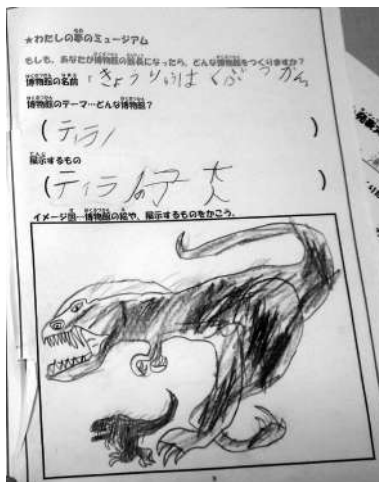 ★わたしの夢のミュージアム
もしも、あなたが博物館の館長になったら、どんな博物館をつくりますか？
博物館の名前：きょうりゅうはくぶつかん
博物館のテーマ…どんな博物館？
（ティラノ）
展示するもの
（ティラノの子 大人）
イメージ図…博物館の絵や、展示するものをかこう。